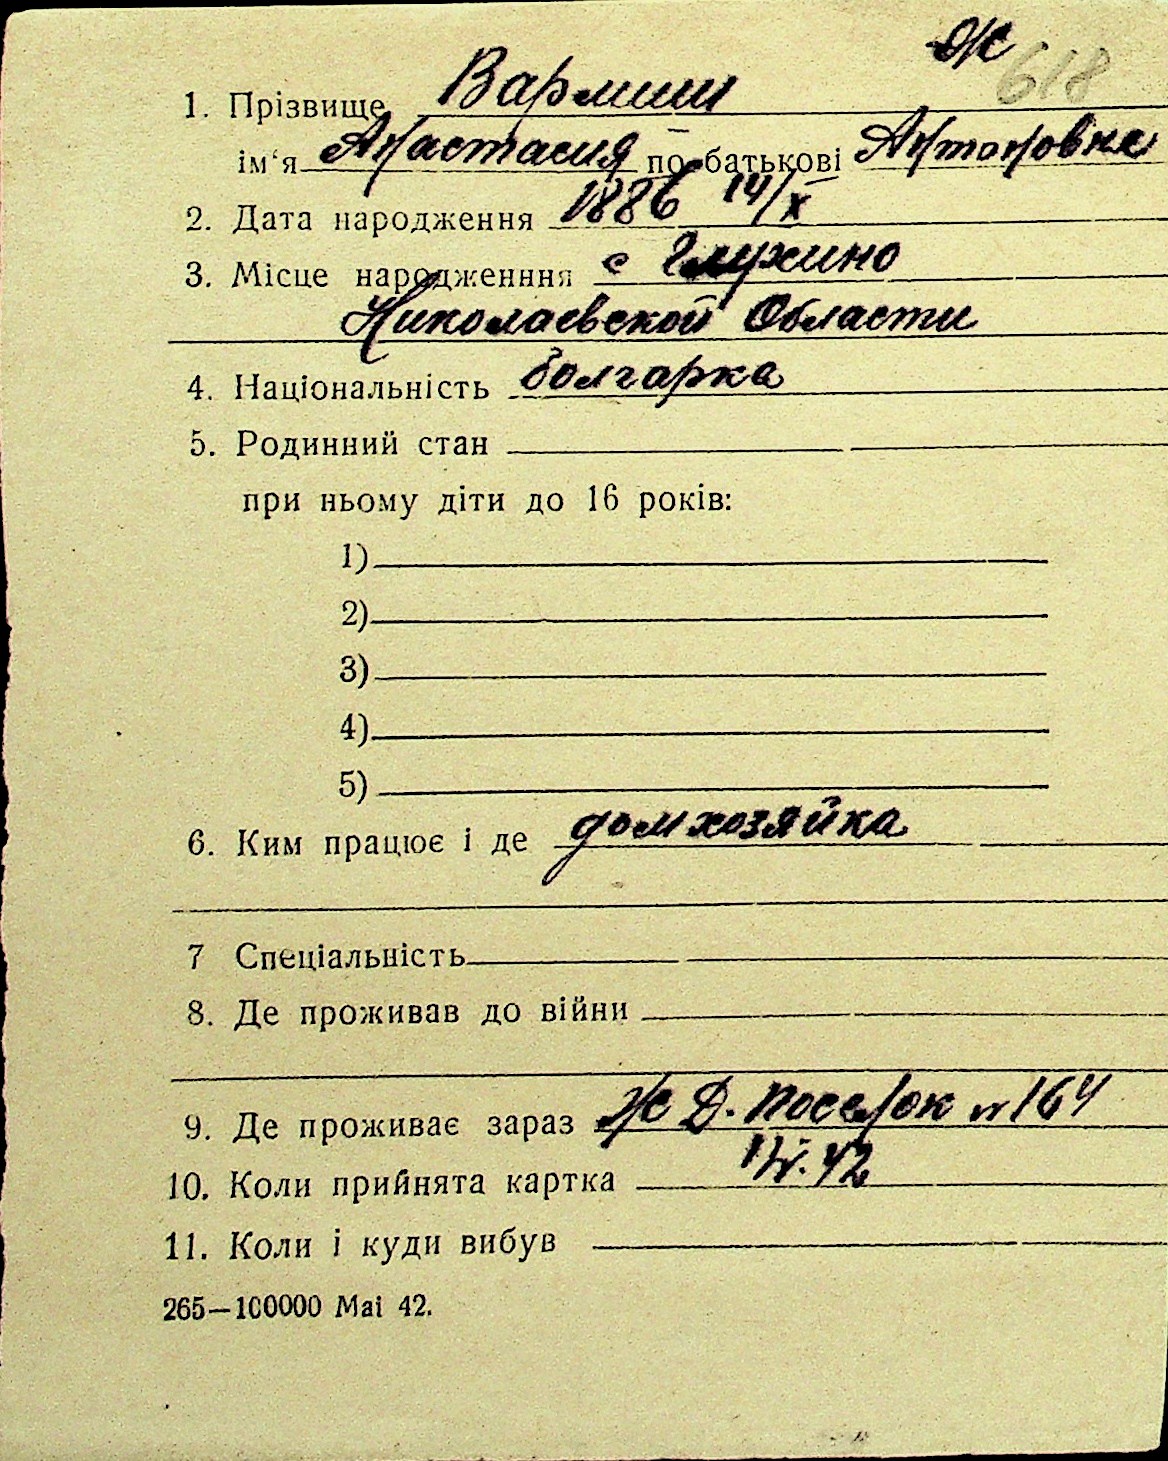 Ж
618
1. Прізвище Вармиш
ім‘я Анастасия по-батькові Антоновна
2. Дата народження 1886 14/X
3. Місце народженння с Глухино
Николаевской Области
4. Національність болгарка
5. Родинний стан
при ньому діти до 16 років:
1)
2)
3)
4)
5)
6. Ким працює і де домхозяйка
7 Спеціальність
8. Де проживав до війни
9. Де проживає зараз Ж Д. поселок n 164
10. Коли прийнята картка
11. Коли і куди вибув
265—100000 Mai 42.